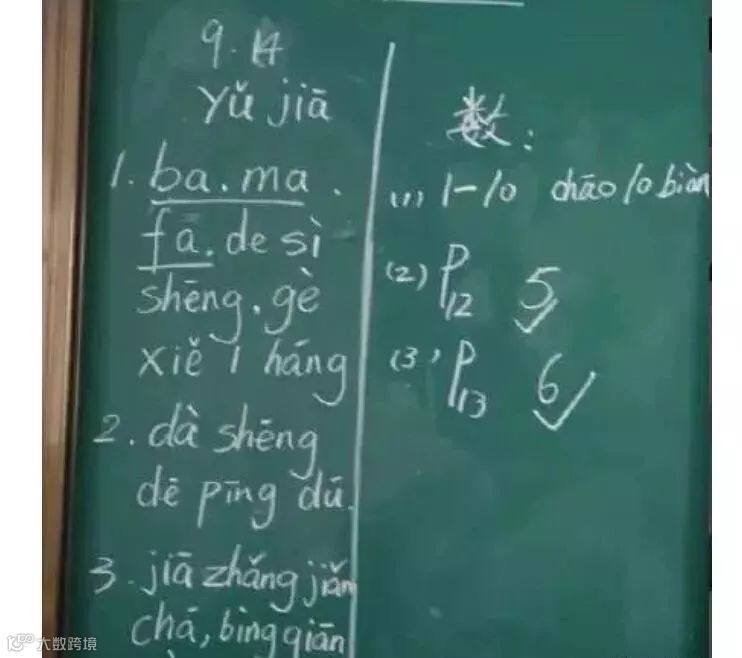 9.14
Yǔ jiā
1. ba. ma.
fā. de sì
shēng. gè
xiě 1 háng
2. dà shēng
dē pīng dú.
3. jiā zhǎng jiǎn
chá, bìng qiān
数:
(1) 1-10 chāo 10 biàn
(2) P12 5
(3) P13 6
大数跨境